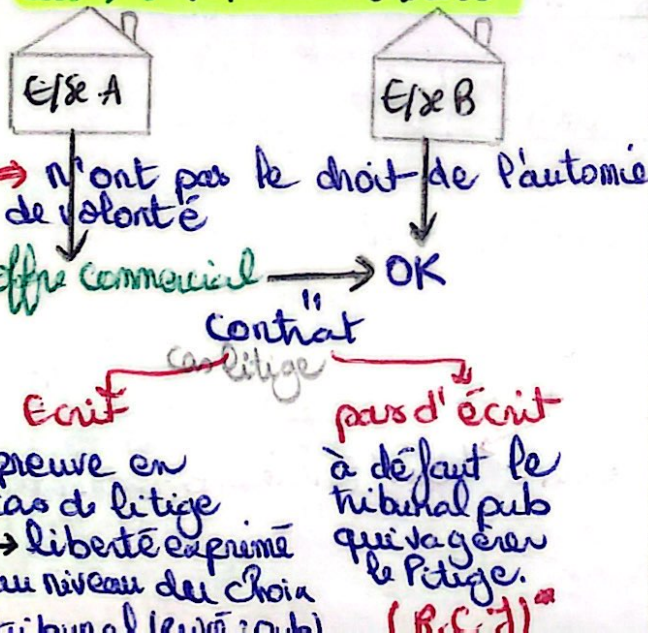 E/se A
E/se B
⇒ n'ont pas le droit de l'automie
de volonté
offre commercial → OK
"
Contrat
cas litige
Ecrit
pas d'écrit
preuve en
cas de litige
→ liberté exprimé
au niveau du choix
tribunal (privé : pub)
à défaut le
tribunal pub
qui va gérer
le litige.
(R.C.J)*